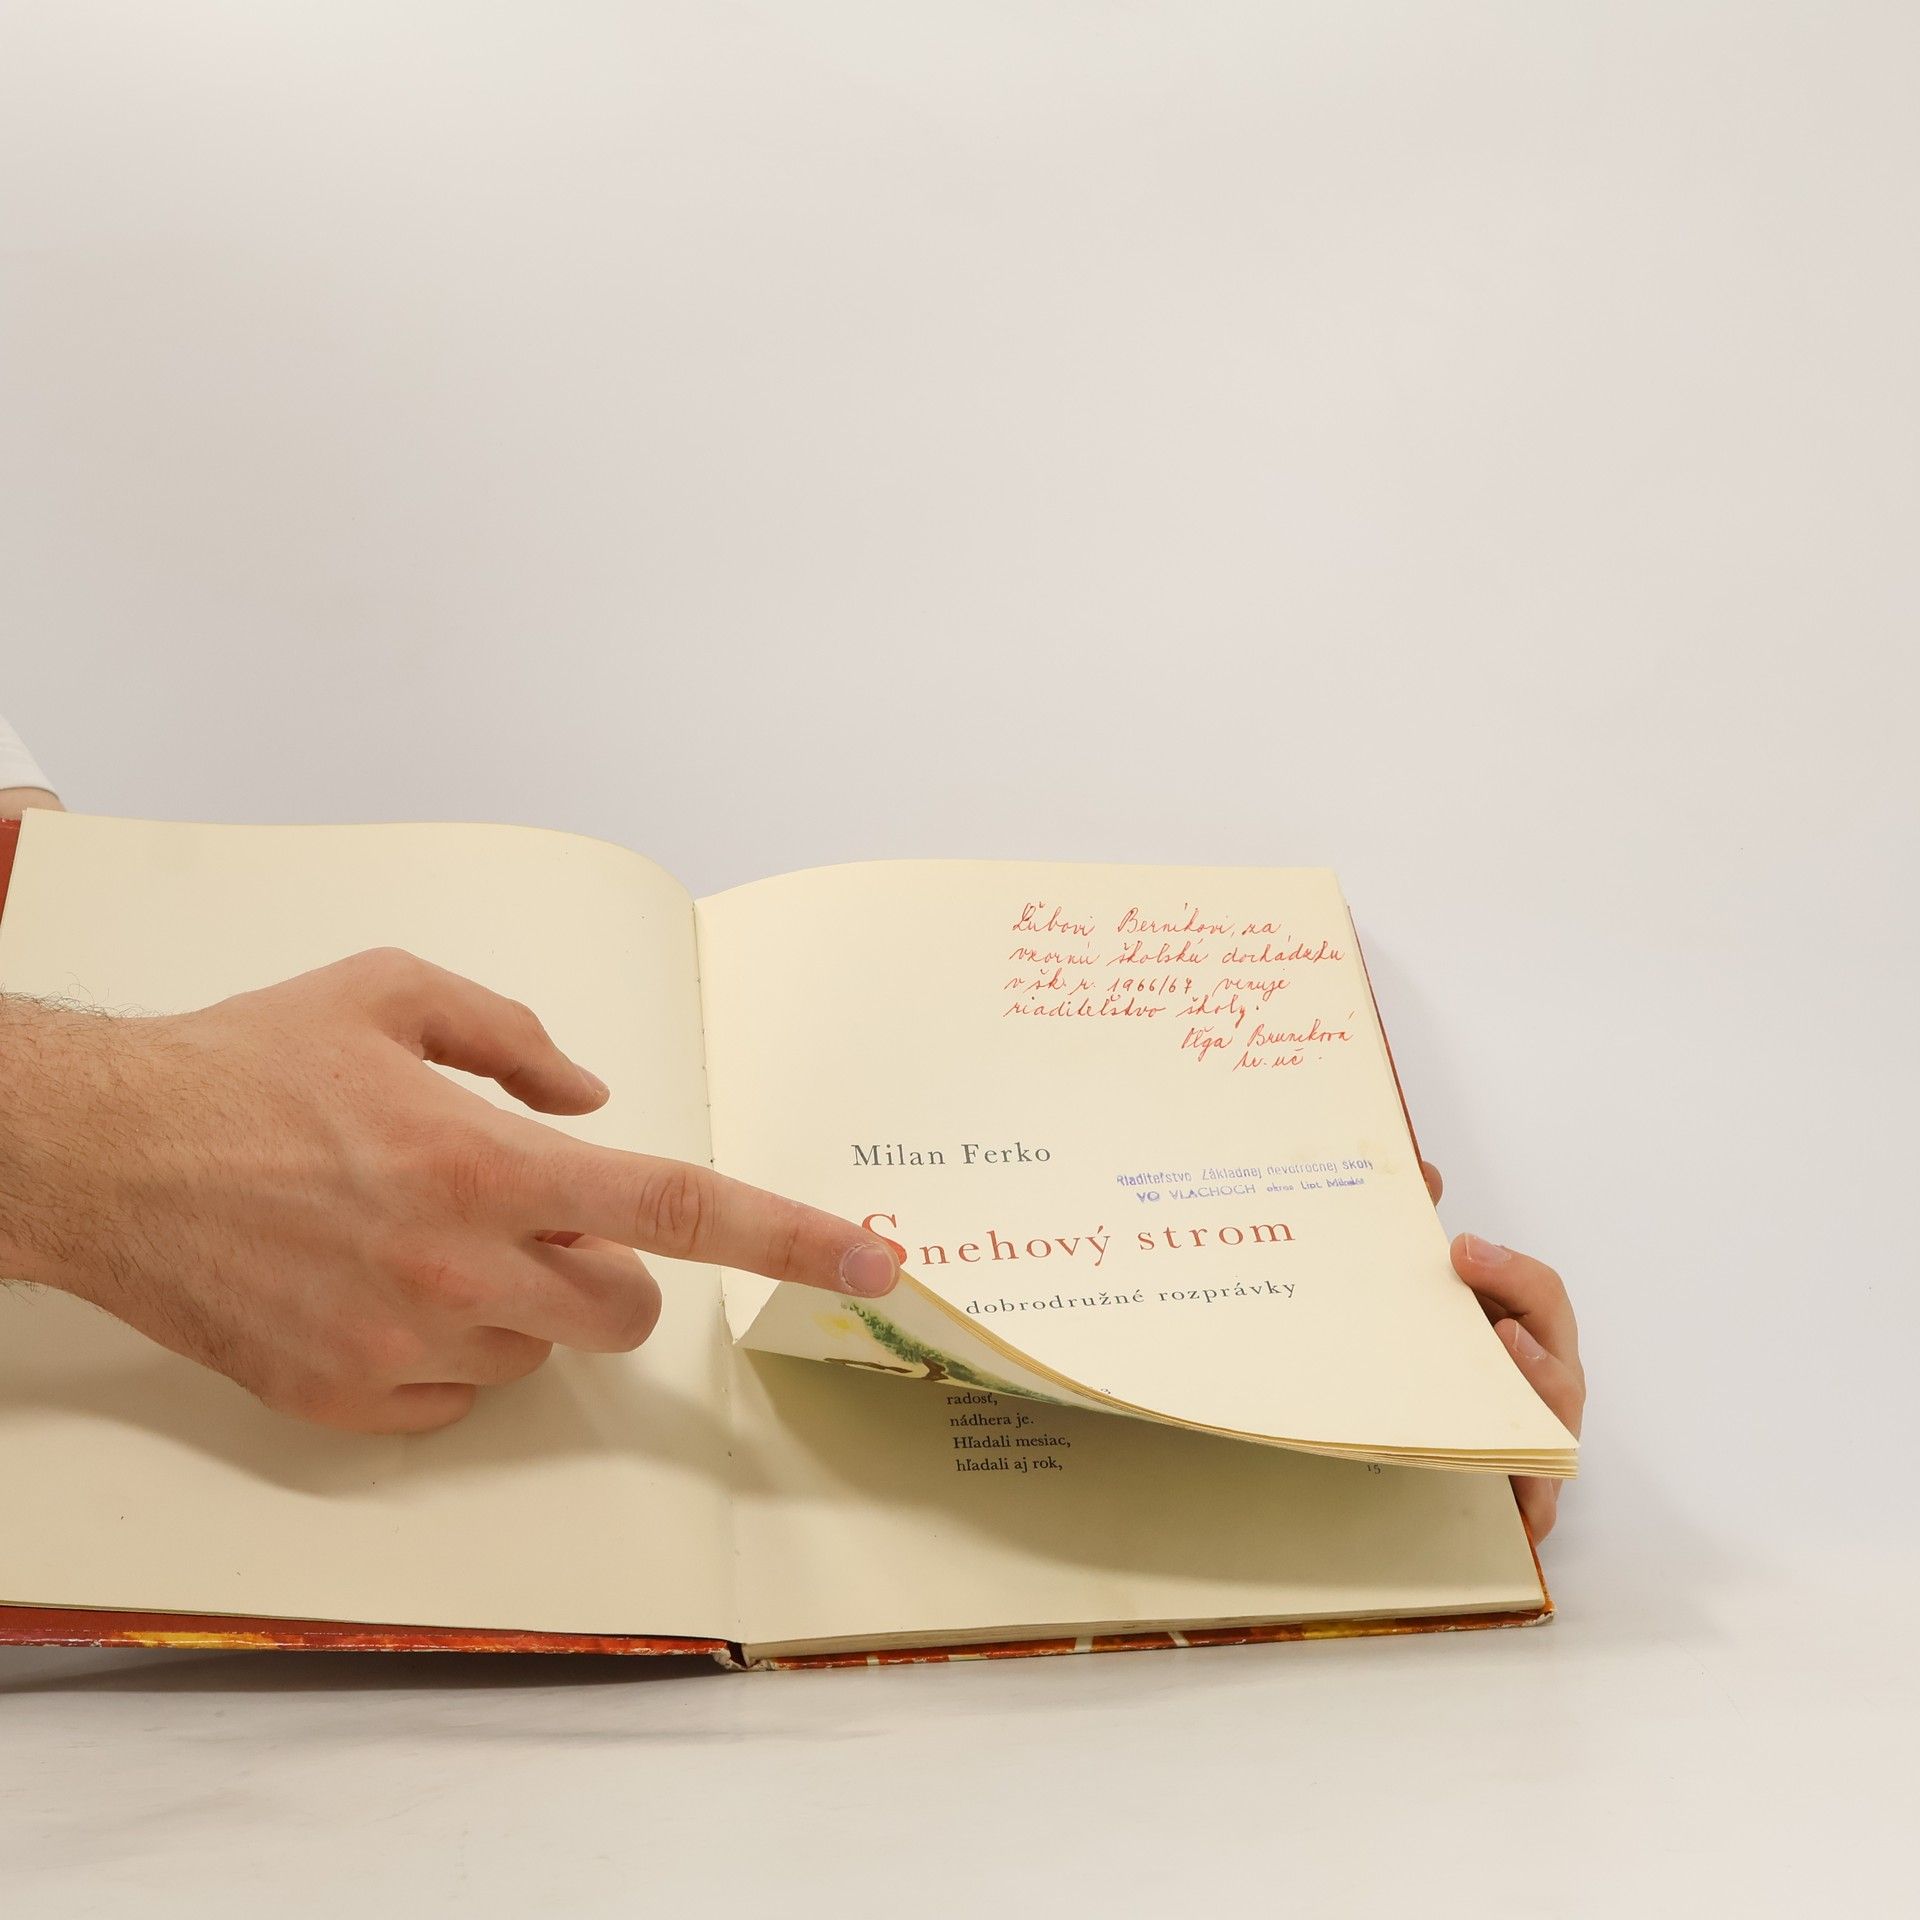 Ľubovi Berníkovi, za
vzornú školskú dochádzku
v šk. r. 1966/67 venuje
riaditeľstvo školy.
Oľga Bruníková
tr. uč.
Milan Ferko
Riaditeľstvo Základnej deväťročnej školy
VO VLACHOCH okres Lipt. Mikuláš
Snehový strom
dobrodružné rozprávky
3
radosť,
nádhera je.
Hľadali mesiac,
hľadali aj rok,
15